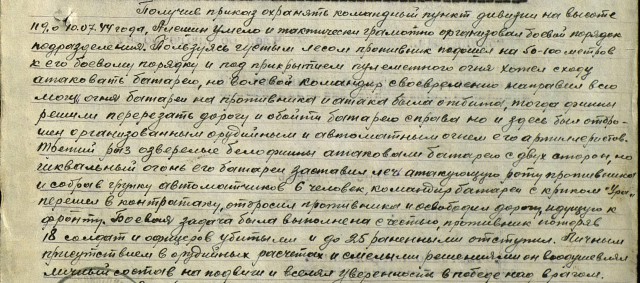 Получив приказ охранять командный пункт дивизии на высоте
119,0 10.07.44 года, Алешин умело и тактически грамотно организовал боевой порядок
подразделения. Пользуясь густым лесом противник подошел на 50-100 метров
к его боевому порядку и под прикрытием пулеметного огня хотел сходу
атаковать батарею, но волевой командир своевременно направил всю
мощь огня батареи на противника и атака была отбита, тогда финны
решили перерезать дорогу и обойти батарею справа но и здесь был отбро-
шен организованным орудийным и автоматным огнем его артиллеристов.
Третий раз озверелые белофинны атаковали батарею с двух сторон, но
шквальный огонь его батареи заставил лечь атакующую роту противника
и собрав группу автоматчиков 6 человек, командир батареи с криком "Ура"
перешел в контратаку, отбросил противника и освободил дорогу, идущую к
фронту. Боевая задача была выполнена с честью, противник потеряв
18 солдат и офицеров убитыми и до 25 раненными отступил. Личным
присутствием в орудийных расчетах и смелыми решениями он воодушевлял
личный состав на подвиги и вселял уверенность в победе над врагом.